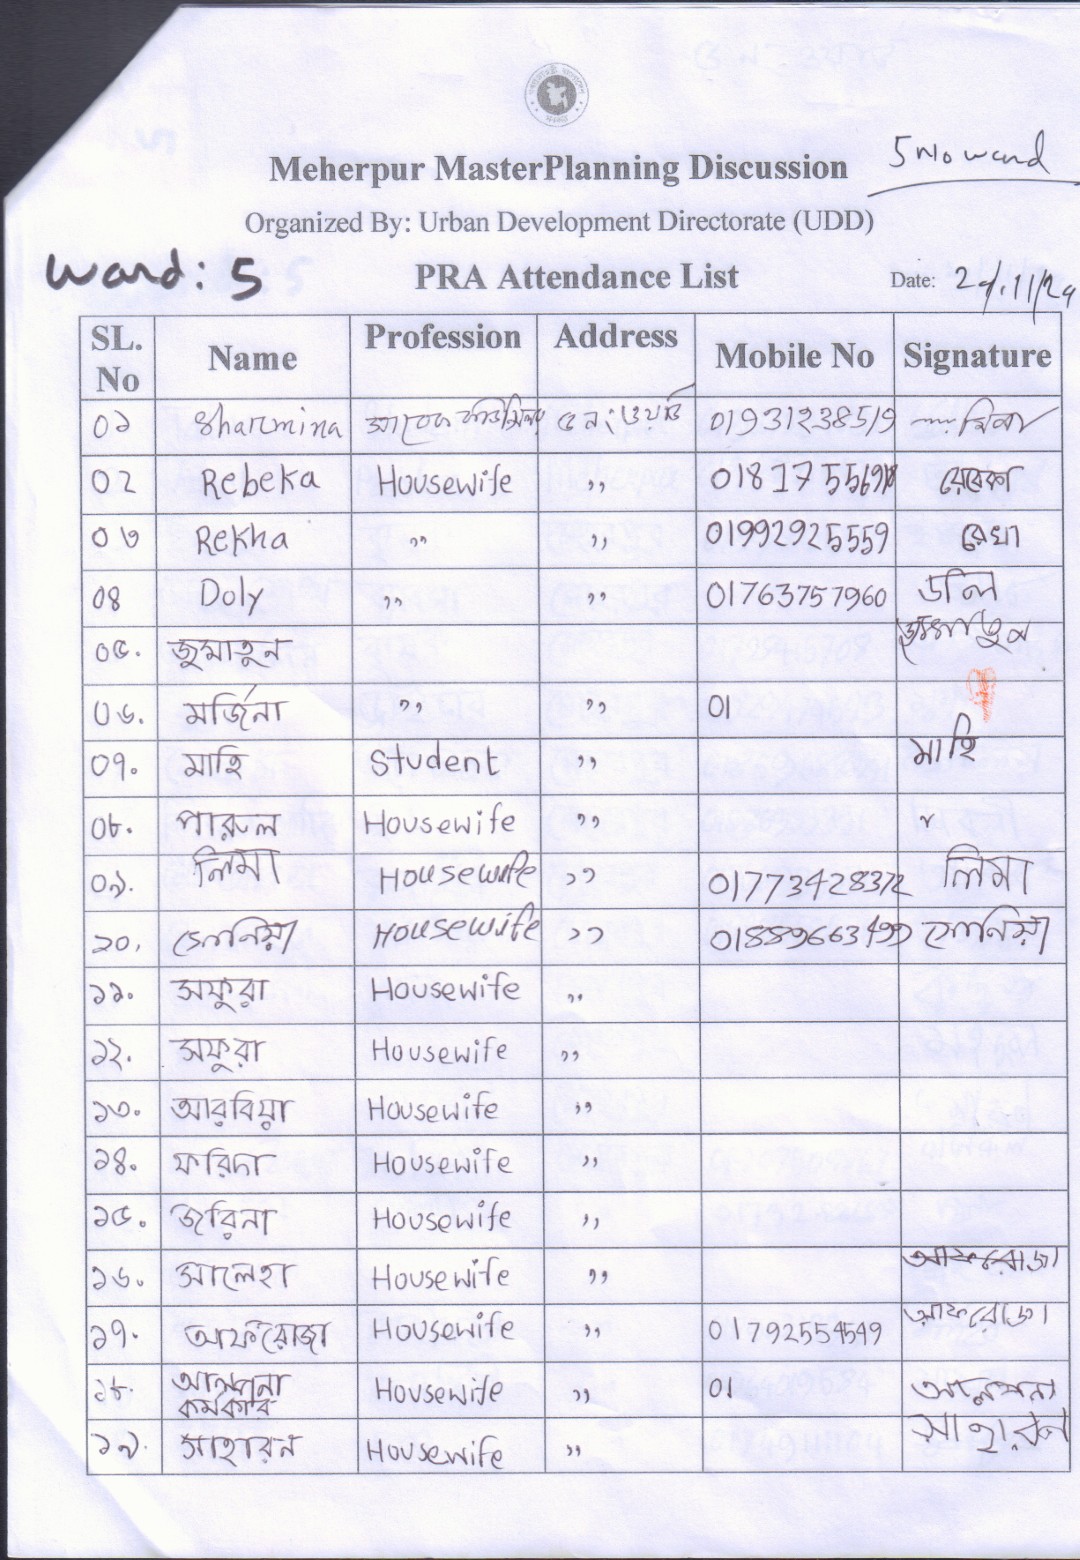 5 No ward
Meherpur MasterPlanning Discussion
Organized By: Urban Development Directorate (UDD)
Ward: 5
PRA Attendance List
Date:
SL. No Name Profession Address Mobile No Signature
০১ Sharmina সাবেক কাউন্সিলর ৫ নং ওয়ার্ড 01931238519
০২ Rebeka Housewife ,, রেবেকা
০৩ Rekha ,, ,, 01992925559 রেখা
০৪ Doly ,, ,, 01763757960 ডলি
০৫. জুমাতুন
০৬. মর্জিনা ,, ,, 01
০৭. মাহি Student ,, মাহি
০৮. পারুল Housewife ,,
০৯. লিমা Housewife ,, 01773428372 লিমা
১০. সেলিনিয়া Housewife ,,
১১. সফুরা Housewife ,,
১২. সফুরা Housewife ,,
১৩. আরবিয়া Housewife ,,
১৪. ফরিদা Housewife ,,
১৫. জরিনা Housewife ,,
১৬. সালেহা Housewife ,, আফরোজা
১৭. আফরোজা Housewife ,, 01792554549 আফরোজা
১৮. আলপনা কর্মকার Housewife ,, 01 আলপনা
১৯. সাহারন Housewife ,, সাহারন